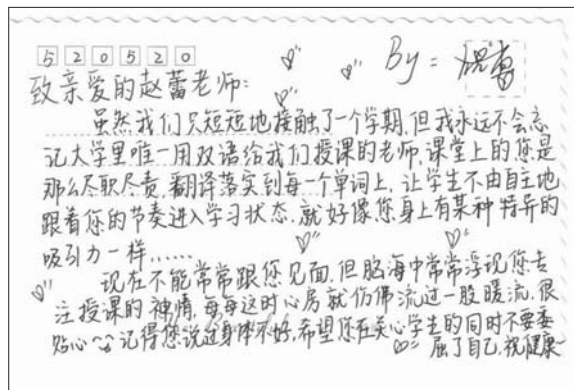 520520
By = 倪雪
致亲爱的赵蕾老师:
虽然我们只短短地接触了一个学期,但我永远不会忘
记大学里唯一用双语给我们授课的老师,课堂上的您是
那么尽职尽责,翻译落实到每一个单词上,让学生不由自主地
跟着您的节奏进入学习状态.就好像您身上有某种特异的
吸引力一样……
现在不能常常跟您见面,但脑海中常常浮现您专
注授课的神情,每每这时心房就仿佛流过一股暖流,很
贴心~ 记得您说过身体不好,希望您在关心学生的同时不要委
屈了自己,祝健康~